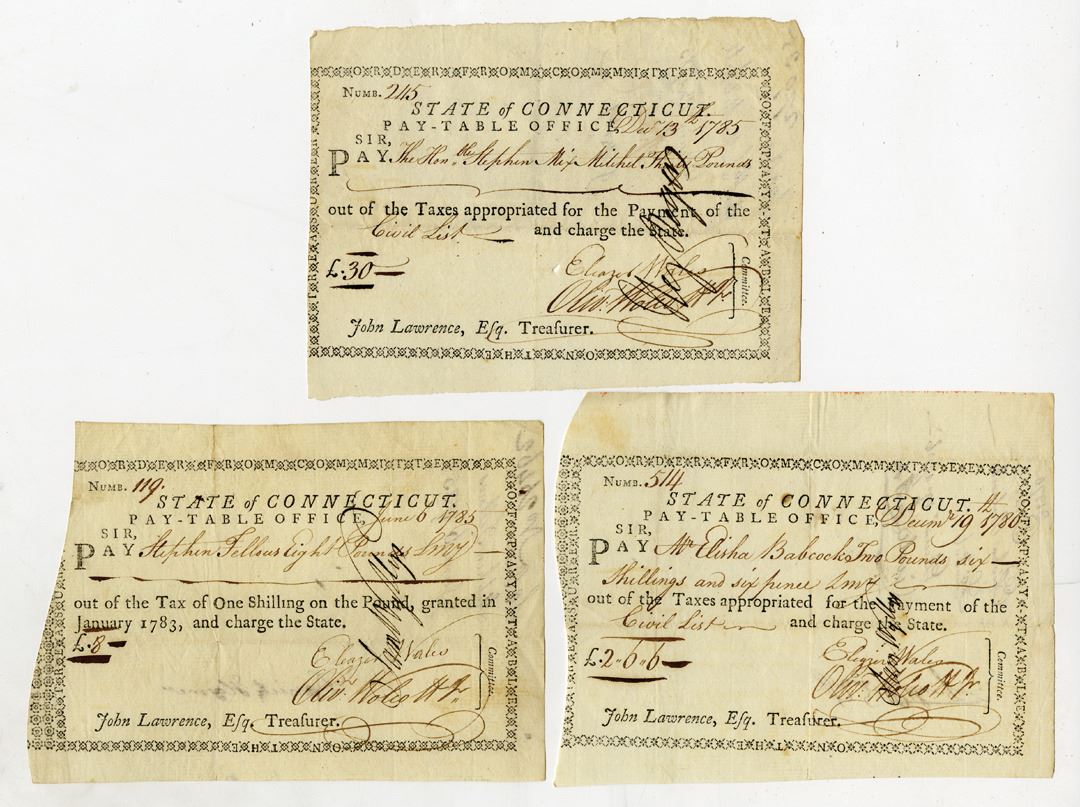 ORDER FROM COMMITTEE
OF PAY-TABLE
ON THE
TREASURER
NUMB. 245
STATE of CONNECTICUT.
PAY-TABLE OFFICE, Decr 13th 1785
SIR,
PAY The Honble Stephen Mix Mitchel Thirty Pounds
out of the Taxes appropriated for the Payment of the
Civil List and charge the State.
£.30
Eleazer Wales
Committee.
John Lawrence, Esq. Treasurer.
ORDER FROM COMMITTEE
OF PAY-TABLE
ON THE
TREASURER
NUMB. 119.
STATE of CONNECTICUT.
PAY-TABLE OFFICE, June 6 1785
SIR,
PAY Stephen Fellous Eight Pounds Lmy
out of the Tax of One Shilling on the Pound, granted in
January 1783, and charge the State.
£.8
Eleazer Wales
Committee.
John Lawrence, Esq. Treasurer.
ORDER FROM COMMITTEE
OF PAY-TABLE
ON THE
TREASURER
NUMB. 514
STATE of CONNECTICUT.
PAY-TABLE OFFICE, Decemr 19th
SIR,
PAY Mr Elisha Babcock Two Pounds six
Shillings and six pence Lmy
out of the Taxes appropriated for the Payment of the
Civil List and charge the State.
£.2.6.6
Elezier Wales
Committee.
John Lawrence, Esq. Treasurer.